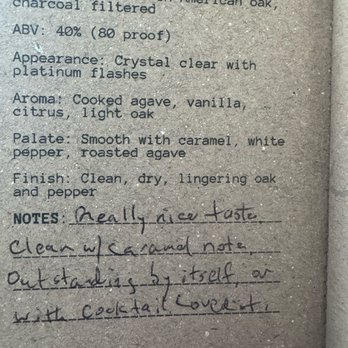 American oak,
charcoal filtered
ABV: 40% (80 proof)
Appearance: Crystal clear with
platinum flashes
Aroma: Cooked agave, vanilla,
citrus, light oak
Palate: Smooth with caramel, white
pepper, roasted agave
Finish: Clean, dry, lingering oak
and pepper
NOTES: Really nice taste,
Clean w/ caramel note,
Outstanding by itself, or
with cocktail. Love it.